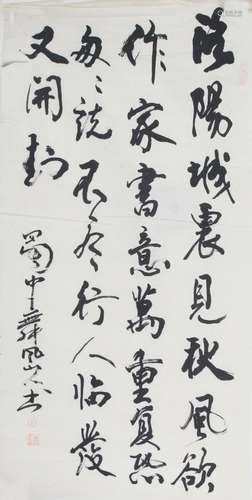 洛陽城裏見秋風欲
作家書意萬重復恐
匆匆說不盡行人臨發
又開封
蜀中舞風山人書